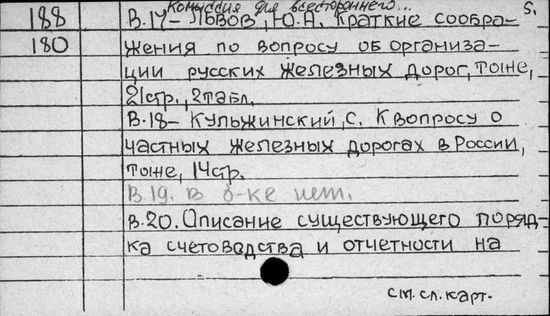 Комиссия для всестороннего... 5.
188 В.17- Львов, Ю.А. Краткие сообра-
180 жения по вопросу об организа-
ции русских железных дорог, тоже,
21стр., 2табл.
В.18- Кульжинский, С. К вопросу о
частных железных дорогах в России,
тоже, 14стр.
В.19. в б-ке нет.
В.20. Описание существующего поряд-
ка счетоводства и отчетности на
см. сл. карт.